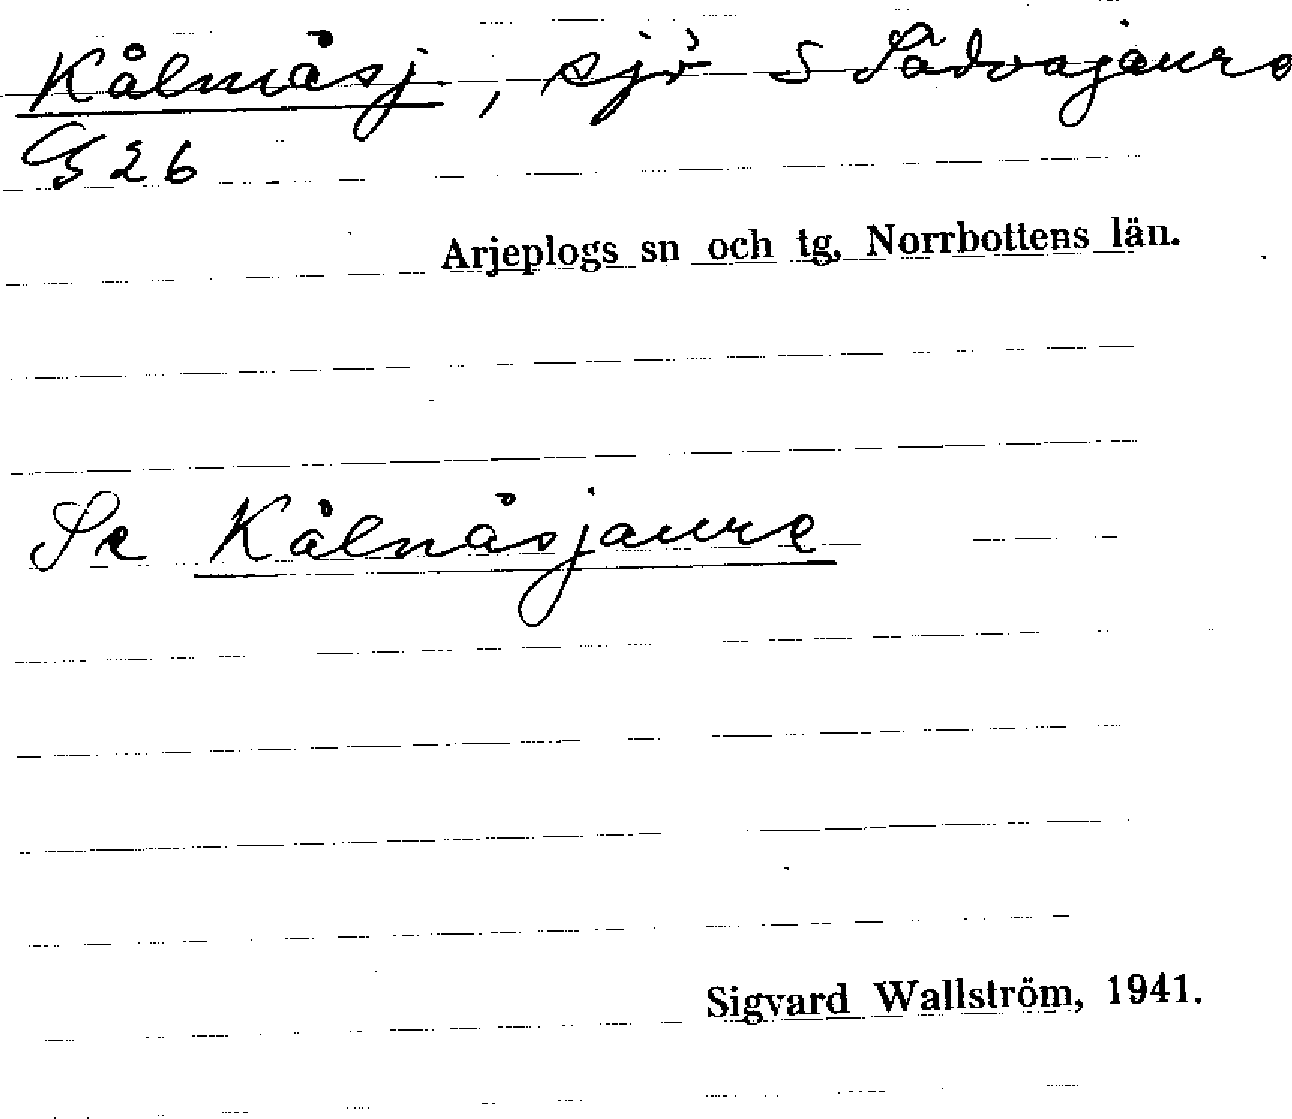 Kålmåsj, sjö S Sädvajaure
G 26
Arjeplogs sn och tg, Norrbottens län.
Se Kålmåsjaure
Sigvard Wallström, 1941.